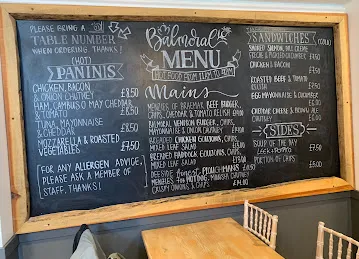 PLEASE BRING A
TABLE NUMBER
WHEN ORDERING, THANKS!
(HOT)
PANINIS
CHICKEN, BACON
& ONION CHUTNEY £8.50
HAM, CAMBUS O' MAY CHEDDAR
& TOMATO £8.50
TUNA MAYONNAISE
& CHEDDAR £8.50
MOZZARELLA & ROASTED
VEGETABLES £7.50
[FOR ANY ALLERGEN ADVICE,
PLEASE ASK A MEMBER OF
STAFF, THANKS!]
Balmoral
MENU
HOT FOOD FROM 11AM TO 4PM
Mains
MENZIES OF BRAEMAR BEEF BURGER,
CHIPS, CHEDDAR & TOMATO RELISH
BALMORAL VENISON BURGER, CHIPS,
MAYONNAISE & ONION CHUTNEY
BREADED CHICKEN GOUJONS, CHIPS,
MIXED LEAF SALAD
BREADED HADDOCK GOUJONS, CHIPS
MIXED LEAF SALAD
DEESIDE PLOUGHMANS
CRISPY ONIONS & CHIPS £14.00
SANDWICHES (COLD)
SMOKED SALMON, DILL CREME
CHICKEN & BACON
ROASTED BEEF & TOMATO
RELISH £7.50
EGG MAYONNAISE & CUCUMBER
CHEDDAR CHEESE &
CHUTNEY £6.00
SIDES
SOUP OF THE DAY £7.50
PORTION OF CHIPS £5.00